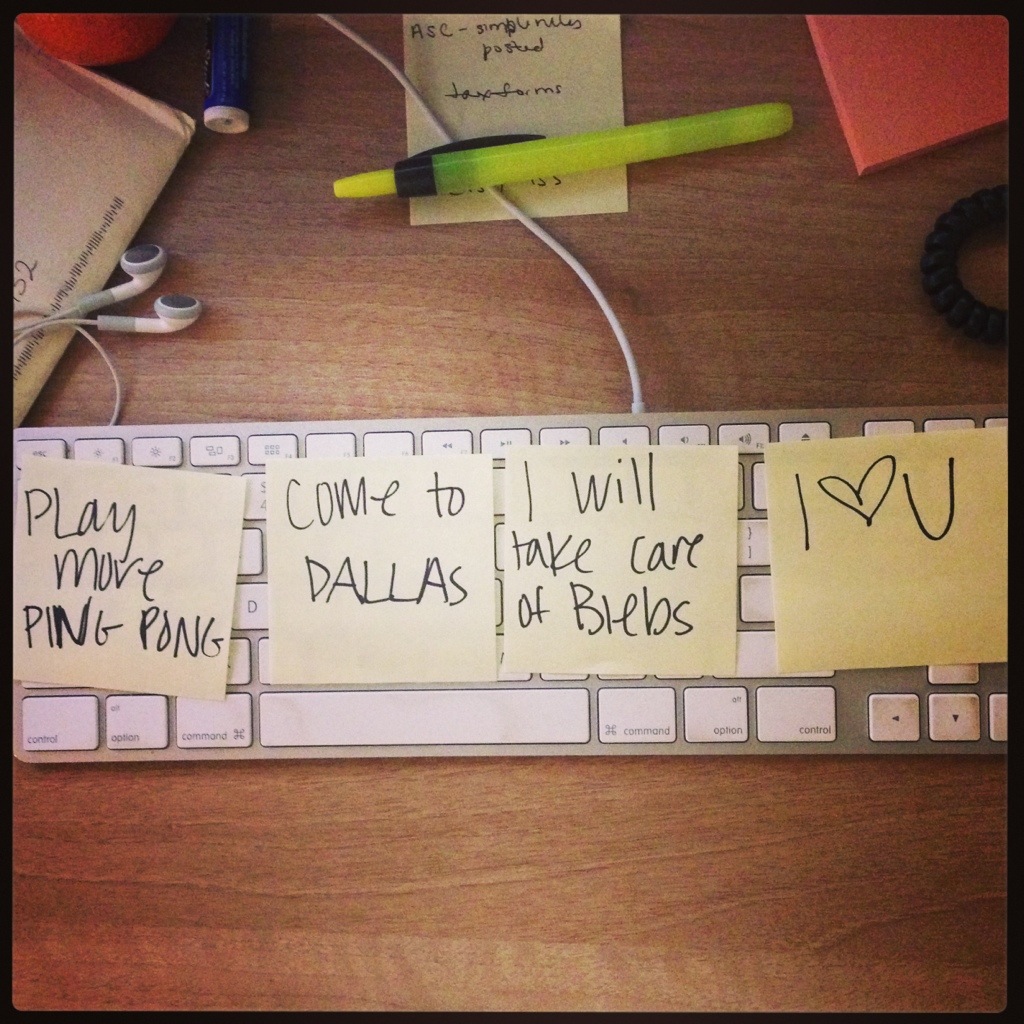 ASC - simplerules
posted
tax forms
52
PLay
more
PING PONG
COME to
DALLAS
I will
take care
of Blebs
I ♥ U
esc
D
control
alt
option
command ⌘
⌘ command
alt
option
control